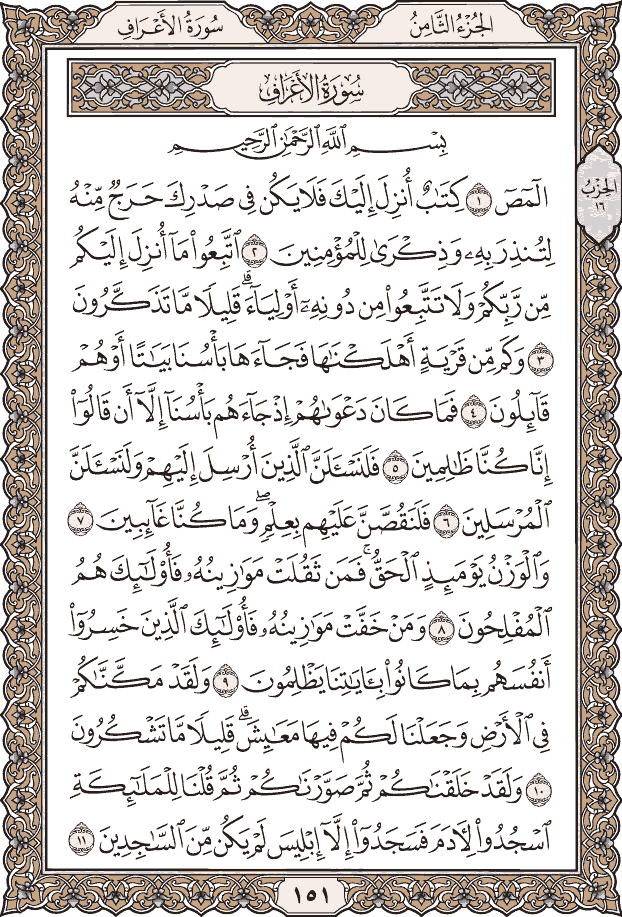 الجُزْءُ الثَّامِنُ
سُورَةُ الأَعْرَافِ
سُورَةُ الأَعْرَافِ
بِسْمِ اللَّهِ الرَّحْمَٰنِ الرَّحِيمِ
الٓمٓصٓ ١ كِتَٰبٌ أُنزِلَ إِلَيْكَ فَلَا يَكُن فِى صَدْرِكَ حَرَجٌ مِّنْهُ
لِتُنذِرَ بِهِۦ وَذِكْرَىٰ لِلْمُؤْمِنِينَ ٢ ٱتَّبِعُوا۟ مَآ أُنزِلَ إِلَيْكُم
مِّن رَّبِّكُمْ وَلَا تَتَّبِعُوا۟ مِن دُونِهِۦٓ أَوْلِيَآءَۗ قَلِيلًا مَّا تَذَكَّرُونَ
٣ وَكَم مِّن قَرْيَةٍ أَهْلَكْنَٰهَا فَجَآءَهَا بَأْسُنَا بَيَٰتًا أَوْ هُمْ
قَآئِلُونَ ٤ فَمَا كَانَ دَعْوَىٰهُمْ إِذْ جَآءَهُم بَأْسُنَآ إِلَّآ أَن قَالُوٓا۟
إِنَّا كُنَّا ظَٰلِمِينَ ٥ فَلَنَسْـَٔلَنَّ ٱلَّذِينَ أُرْسِلَ إِلَيْهِمْ وَلَنَسْـَٔلَنَّ
ٱلْمُرْسَلِينَ ٦ فَلَنَقُصَّنَّ عَلَيْهِم بِعِلْمٍۖ وَمَا كُنَّا غَآئِبِينَ ٧
وَٱلْوَزْنُ يَوْمَئِذٍ ٱلْحَقُّۚ فَمَن ثَقُلَتْ مَوَٰزِينُهُۥ فَأُو۟لَٰٓئِكَ هُمُ
ٱلْمُفْلِحُونَ ٨ وَمَنْ خَفَّتْ مَوَٰزِينُهُۥ فَأُو۟لَٰٓئِكَ ٱلَّذِينَ خَسِرُوٓا۟
أَنفُسَهُم بِمَا كَانُوا۟ بِـَٔايَٰتِنَا يَظْلِمُونَ ٩ وَلَقَدْ مَكَّنَّٰكُمْ
فِى ٱلْأَرْضِ وَجَعَلْنَا لَكُمْ فِيهَا مَعَٰيِشَۗ قَلِيلًا مَّا تَشْكُرُونَ
١٠ وَلَقَدْ خَلَقْنَٰكُمْ ثُمَّ صَوَّرْنَٰكُمْ ثُمَّ قُلْنَا لِلْمَلَٰٓئِكَةِ
ٱسْجُدُوا۟ لِـَٔادَمَ فَسَجَدُوٓا۟ إِلَّآ إِبْلِيسَ لَمْ يَكُن مِّنَ ٱلسَّٰجِدِينَ ١١
الحِزْبُ
١٦
١٥١